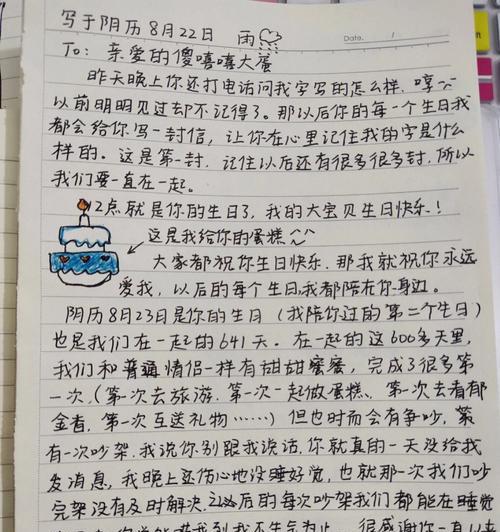 写于阴历8月22日 雨
Date. /
To：亲爱的傻嘻嘻大蛋
昨天晚上你还打电话问我字写的怎么样，哼
以前明明见过却不记得了。那以后你的每一个生日我
都会给你写一封信，让你在心里记住我的字是什么
样的。这是第一封，记住以后还有很多很多封，所以
我们要一直在一起。
12点就是你的生日了，我的大宝贝生日快乐！
这是我给你的蛋糕
大家都祝你生日快乐，那我就祝你永远
爱我，以后的每个生日我都陪在你身边。
阴历8月23日是你的生日（我陪你过的第二个生日）
也是我们在一起的641天。在一起的这600多天里，
我们和普通情侣一样有甜甜蜜蜜，完成了很多第
一次，（第一次去旅游，第一次一起做蛋糕、第一次去看郁
金香，第一次互送礼物……）但也时而会有争吵，
有一次吵架，我说你别跟我说话，你就真的一天没给我
发消息，我晚上还伤心地没睡好觉，也就那一次我们吵
完架没有及时解决，之后的每次吵架我们都能在睡觉